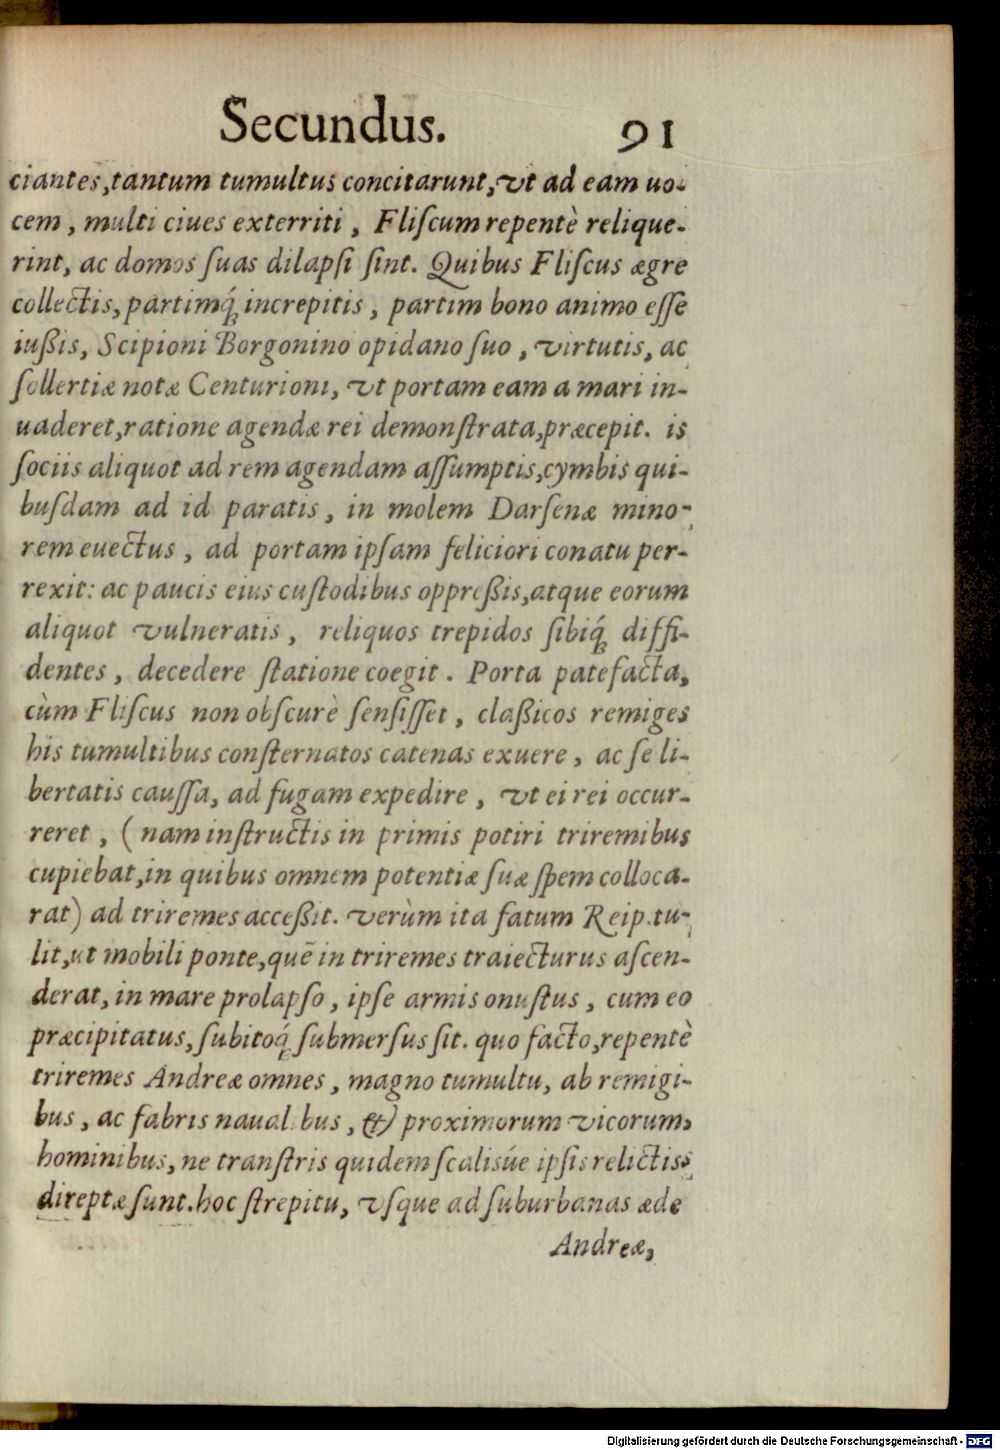 Secundus. 91
ciantes, tantum tumultus concitarunt, vt ad eam uo-
cem, multi ciues exterriti, Fliſcum repentè relique-
rint, ac domos ſuas dilapſi ſint. Quibus Fliſcus ægre
collectis, partimq́; increpitis, partim bono animo eſſe
iußis, Scipioni Borgonino opidano ſuo, virtutis, ac
ſollertiæ notæ Centurioni, vt portam eam a mari in-
uaderet, ratione agendæ rei demonſtrata, præcepit. is
ſociis aliquot ad rem agendam aſſumptis, cymbis qui-
buſdam ad id paratis, in molem Darſenæ mino-
rem euectus, ad portam ipſam feliciori conatu per-
rexit: ac paucis eius cuſtodibus oppreßis, atque eorum
aliquot vulneratis, reliquos trepidos ſibiq́; diffi-
dentes, decedere ſtatione coegit. Porta patefacta,
cùm Fliſcus non obſcurè ſenſiſſet, claßicos remiges
his tumultibus conſternatos catenas exuere, ac ſe li-
bertatis cauſſa, ad fugam expedire, vt ei rei occur-
reret, (nam inſtructis in primis potiri triremibus
cupiebat, in quibus omnem potentiæ ſuæ ſpem colloca-
rat) ad triremes acceßit. verùm ita fatum Reip. tu-
lit, ut mobili ponte, quē in triremes traiecturus aſcen-
derat, in mare prolapſo, ipſe armis onuſtus, cum eo
præcipitatus, ſubitoq́; ſubmerſus ſit. quo facto, repentè
triremes Andreæ omnes, magno tumultu, ab remigi-
bus, ac fabris naualibus, & proximorum vicorum,
hominibus, ne tranſtris quidem ſcalisúe ipſis relictis,
direptæ ſunt. hoc ſtrepitu, vſque ad ſuburbanas æde
Andreæ,
Digitalisierung gefördert durch die Deutsche Forschungsgemeinschaft - DFG